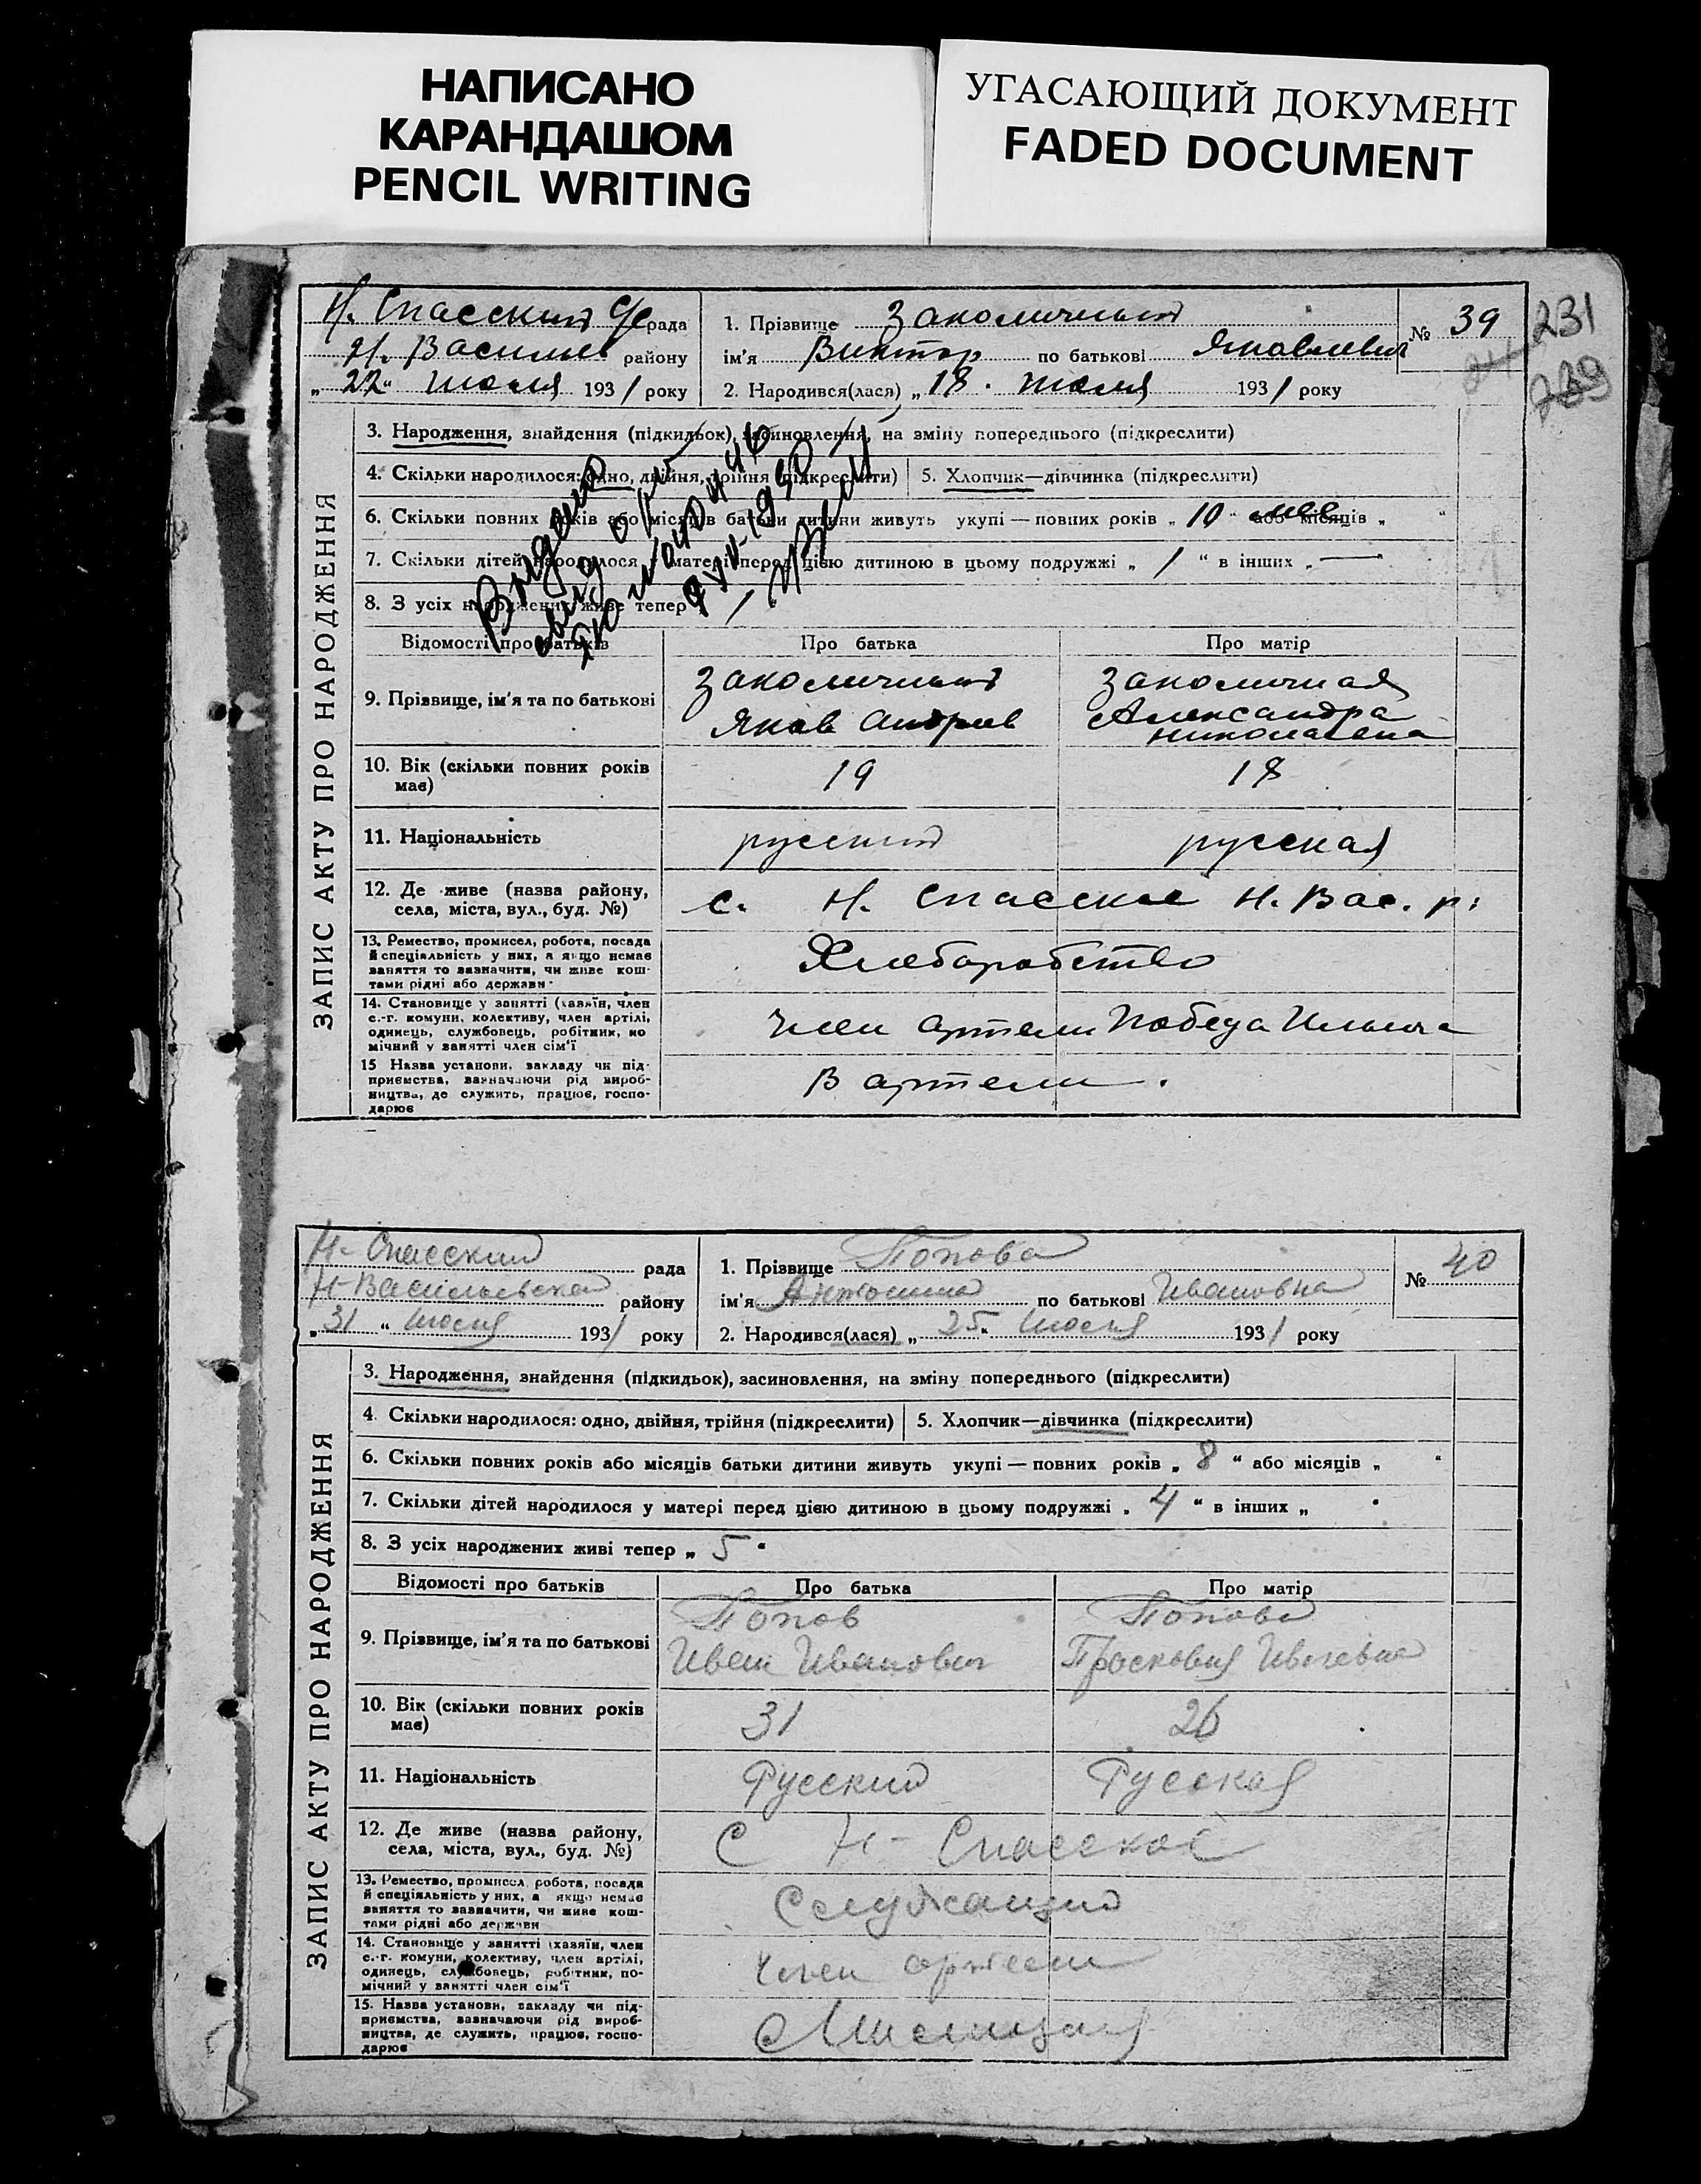 НАПИСАНО
КАРАНДАШОМ
PENCIL WRITING
УГАСАЮЩИЙ ДОКУМЕНТ
FADED DOCUMENT
231
239
Н. Спасский с/рада
Н. Васильев району
„22“ июля 1931 року
1. Прізвище Заколичный
№ 39
ім'я Виктор по батькові Яковлевич
2. Народився(лася) „18. июля 1931 року
ЗАПИС АКТУ ПРО НАРОДЖЕННЯ
3. Народження, знайдення (підкидьок), засиновлення, на зміну попереднього (підкреслити)
4. Скільки народилося: одно, двійня, трійня (підкреслити)
5. Хлопчик—дівчинка (підкреслити)
6. Скільки повних років або місяців батьки дитини живуть укупі — повних років „10“ або місяців „ “
7. Скільки дітей народилося у матері перед цією дитиною в цьому подружжі „1“ в інших „—“
8. З усіх народжених живе тепер
Відомості про батьків
Про батька
Про матір
9. Прізвище, ім'я та по батькові
Заколичный
Яков Андреев
Заколичная
Александра
Николаевна
10. Вік (скільки повних років має)
19
18
11. Національність
русский
русская
12. Де живе (назва району,
села, міста, вул., буд. №)
с. Н. Спасское Н. Вас. р:
13. Ремество, промисел, робота, посада
й спеціяльність у них, а якщо немає
заняття то зазначити, чи живе кош-
тами рідні або держави
Хлеборобство
14. Становище у занятті (хазяїн, член
с.-г. комуни, колективу, член артілі,
одинець, службовець, робітник, по
мічний у занятті член сім'ї
член артели Победа Ильича
15 Назва установи, закладу чи під-
приємства, зазначаючи рід вироб-
ництва, де служить, працює, госпо-
дарює
В артели.
Н- Спасский рада
Н-Васильевской району
„31“ июля 1931 року
1. Прізвище Попова
№ 40
ім'я Антонина по батькові Ивановна
2. Народився(лася) „25“ июля 1931 року
ЗАПИС АКТУ ПРО НАРОДЖЕННЯ
3. Народження, знайдення (підкидьок), засиновлення, на зміну попереднього (підкреслити)
4. Скільки народилося: одно, двійня, трійня (підкреслити)
5. Хлопчик—дівчинка (підкреслити)
6. Скільки повних років або місяців батьки дитини живуть укупі — повних років „8“ або місяців „ “
7. Скільки дітей народилося у матері перед цією дитиною в цьому подружжі „4“ в інших „ “
8. З усіх народжених живі тепер „5“
Відомості про батьків
Про батька
Про матір
9. Прізвище, ім'я та по батькові
Попов
Иван Иванович
Попова
Просковия
10. Вік (скільки повних років має)
31
26
11. Національність
Русский
Русская
12. Де живе (назва району,
села, міста, вул., буд. №)
С Н- Спасское
13. Ремество, промисел, робота, посада
й спеціяльність у них, а якщо немає
заняття то зазначити, чи живе кош-
тами рідні або держави
Служащий
14. Становище у занятті (хазяїн, член
с.-г. комуни, колективу, член артілі,
одинець, службовець, робітник, по-
мічний у занятті член сім'ї
член артели
15. Назва установи, закладу чи під-
приємства, зазначаючи рід вироб-
ництва, де служить, працює, госпо-
дарює